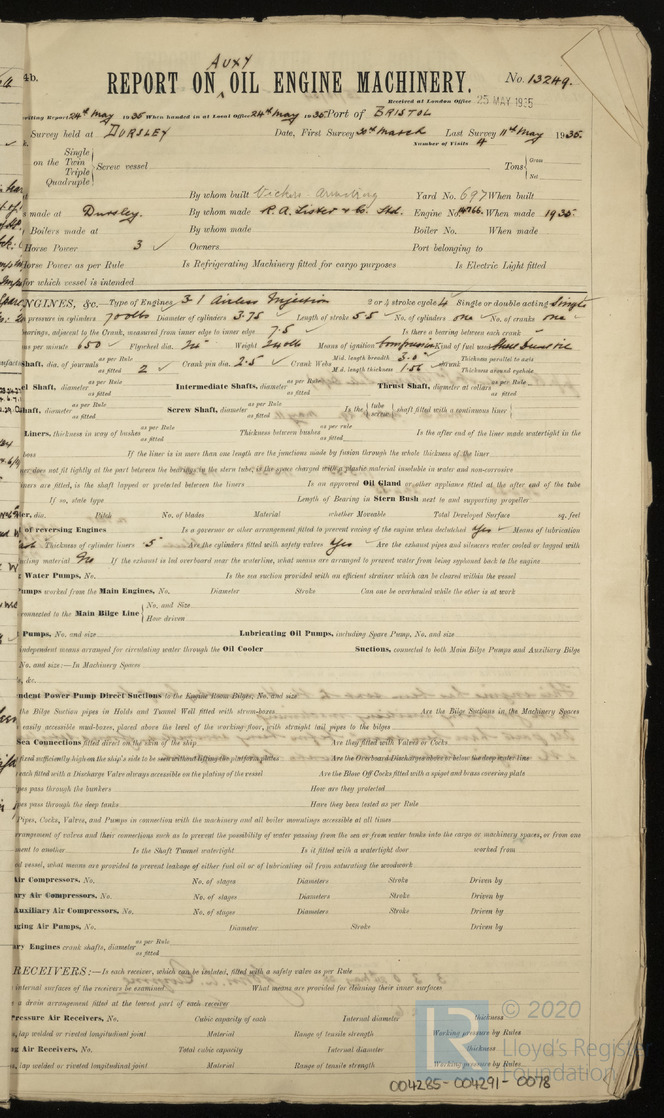 4b.
AUXY
REPORT ON OIL ENGINE MACHINERY.
No. 13249.
Received at London Office 25 MAY 1935
writing Report 24th May 1935 When handed in at Local Office 24th May 1935 Port of BRISTOL
Survey held at DURSLEY Date, First Survey 30th March Last Survey 11th May 1935.
Number of Visits 4
Single
on the Twin
Triple
Quadruple
Screw vessel
Tons Gross
Net
By whom built Vickers Armstrong Yard No. 697 When built
s made at Dursley. By whom made R. A. Lister & Co. Ltd. Engine No. When made 1935.
Boilers made at By whom made Boiler No. When made
Horse Power 3 Owners Port belonging to
Horse Power as per Rule Is Refrigerating Machinery fitted for cargo purposes Is Electric Light fitted
for which vessel is intended
ENGINES, &c. Type of Engines 3-1 Airless Injection 2 or 4 stroke cycle 4 Single or double acting Single
pressure in cylinders Diameter of cylinders 3.75 Length of stroke 5.5 No. of cylinders one No. of cranks one
earings, adjacent to the Crank, measured from inner edge to inner edge 7.5 Is there a bearing between each crank
ns per minute 650 Flywheel dia. Weight Means of ignition Compression Kind of fuel used
Shaft, dia. of journals as per Rule
as fitted 2 Crank pin dia. 2.5 Crank Webs Mid. length breadth 3.0 Thickness parallel to axis
Mid. length thickness 1.56 shrunk Thickness around eyehole
el Shaft, diameter as per Rule
as fitted Intermediate Shafts, diameter as per Rule
as fitted Thrust Shaft, diameter at collars as per Rule
as fitted
haft, diameter as per Rule
as fitted Screw Shaft, diameter as per Rule
as fitted Is the tube
screw shaft fitted with a continuous liner
Liners, thickness in way of bushes as per Rule
as fitted Thickness between bushes as per rule
as fitted Is the after end of the liner made watertight in the
boss If the liner is in more than one length are the junctions made by fusion through the whole thickness of the liner
ner does not fit tightly at the part between the bearings in the stern tube, is the space charged with a plastic material insoluble in water and non-corrosive
iners are fitted, is the shaft lapped or protected between the liners Is an approved Oil Gland or other appliance fitted at the after end of the tube
If so, state type Length of Bearing in Stern Bush next to and supporting propeller
er, dia. Pitch No. of blades Material whether Moveable Total Developed Surface sq. feet
of reversing Engines Is a governor or other arrangement fitted to prevent racing of the engine when declutched Yes Means of lubrication
Thickness of cylinder liners .5 Are the cylinders fitted with safety valves Yes Are the exhaust pipes and silencers water cooled or lagged with
cting material No If the exhaust is led overboard near the waterline, what means are arranged to prevent water from being syphoned back to the engine
Water Pumps, No. Is the sea suction provided with an efficient strainer which can be cleared within the vessel
umps worked from the Main Engines, No. Diameter Stroke Can one be overhauled while the other is at work
connected to the Main Bilge Line No. and Size
How driven
Pumps, No. and size Lubricating Oil Pumps, including Spare Pump, No. and size
independent means arranged for circulating water through the Oil Cooler Suctions, connected to both Main Bilge Pumps and Auxiliary Bilge
No. and size:—In Machinery Spaces
s, &c.
ndent Power Pump Direct Suctions to the Engine Room Bilges, No. and size
the Bilge Suction pipes in Holds and Tunnel Well fitted with strum-boxes Are the Bilge Suctions in the Machinery Spaces
easily accessible mud-boxes, placed above the level of the working-floor, with straight tail pipes to the bilges
Sea Connections fitted direct on the skin of the ship Are they fitted with Valves or Cocks
fixed sufficiently high on the ship's side to be seen without lifting the platform plates Are the Overboard Discharges above or below the deep water line
each fitted with a Discharge Valve always accessible on the plating of the vessel Are the Blow Off Cocks fitted with a spigot and brass covering plate
pes pass through the bunkers How are they protected
pes pass through the deep tanks Have they been tested as per Rule
Pipes, Cocks, Valves, and Pumps in connection with the machinery and all boiler mountings accessible at all times
rrangement of valves and their connections such as to prevent the possibility of water passing from the sea or from water tanks into the cargo or machinery spaces, or from one
ment to another Is the Shaft Tunnel watertight Is it fitted with a watertight door worked from
od vessel, what means are provided to prevent leakage of either fuel oil or of lubricating oil from saturating the woodwork
Air Compressors, No. No. of stages Diameters Stroke Driven by
ry Air Compressors, No. No. of stages Diameters Stroke Driven by
Auxiliary Air Compressors, No. No. of stages Diameters Stroke Driven by
nging Air Pumps, No. Diameter Stroke Driven by
ary Engines crank shafts, diameter as per Rule
as fitted
RECEIVERS:—Is each receiver, which can be isolated, fitted with a safety valve as per Rule
internal surfaces of the receivers be examined What means are provided for cleaning their inner surfaces
a drain arrangement fitted at the lowest part of each receiver
Pressure Air Receivers, No. Cubic capacity of each Internal diameter thickness
s, lap welded or riveted longitudinal joint Material Range of tensile strength Working pressure by Rules
g Air Receivers, No. Total cubic capacity Internal diameter thickness
s, lap welded or riveted longitudinal joint Material Range of tensile strength Working pressure by Rules
© 2020
Lloyd's Register
Foundation
004285-004291-0078